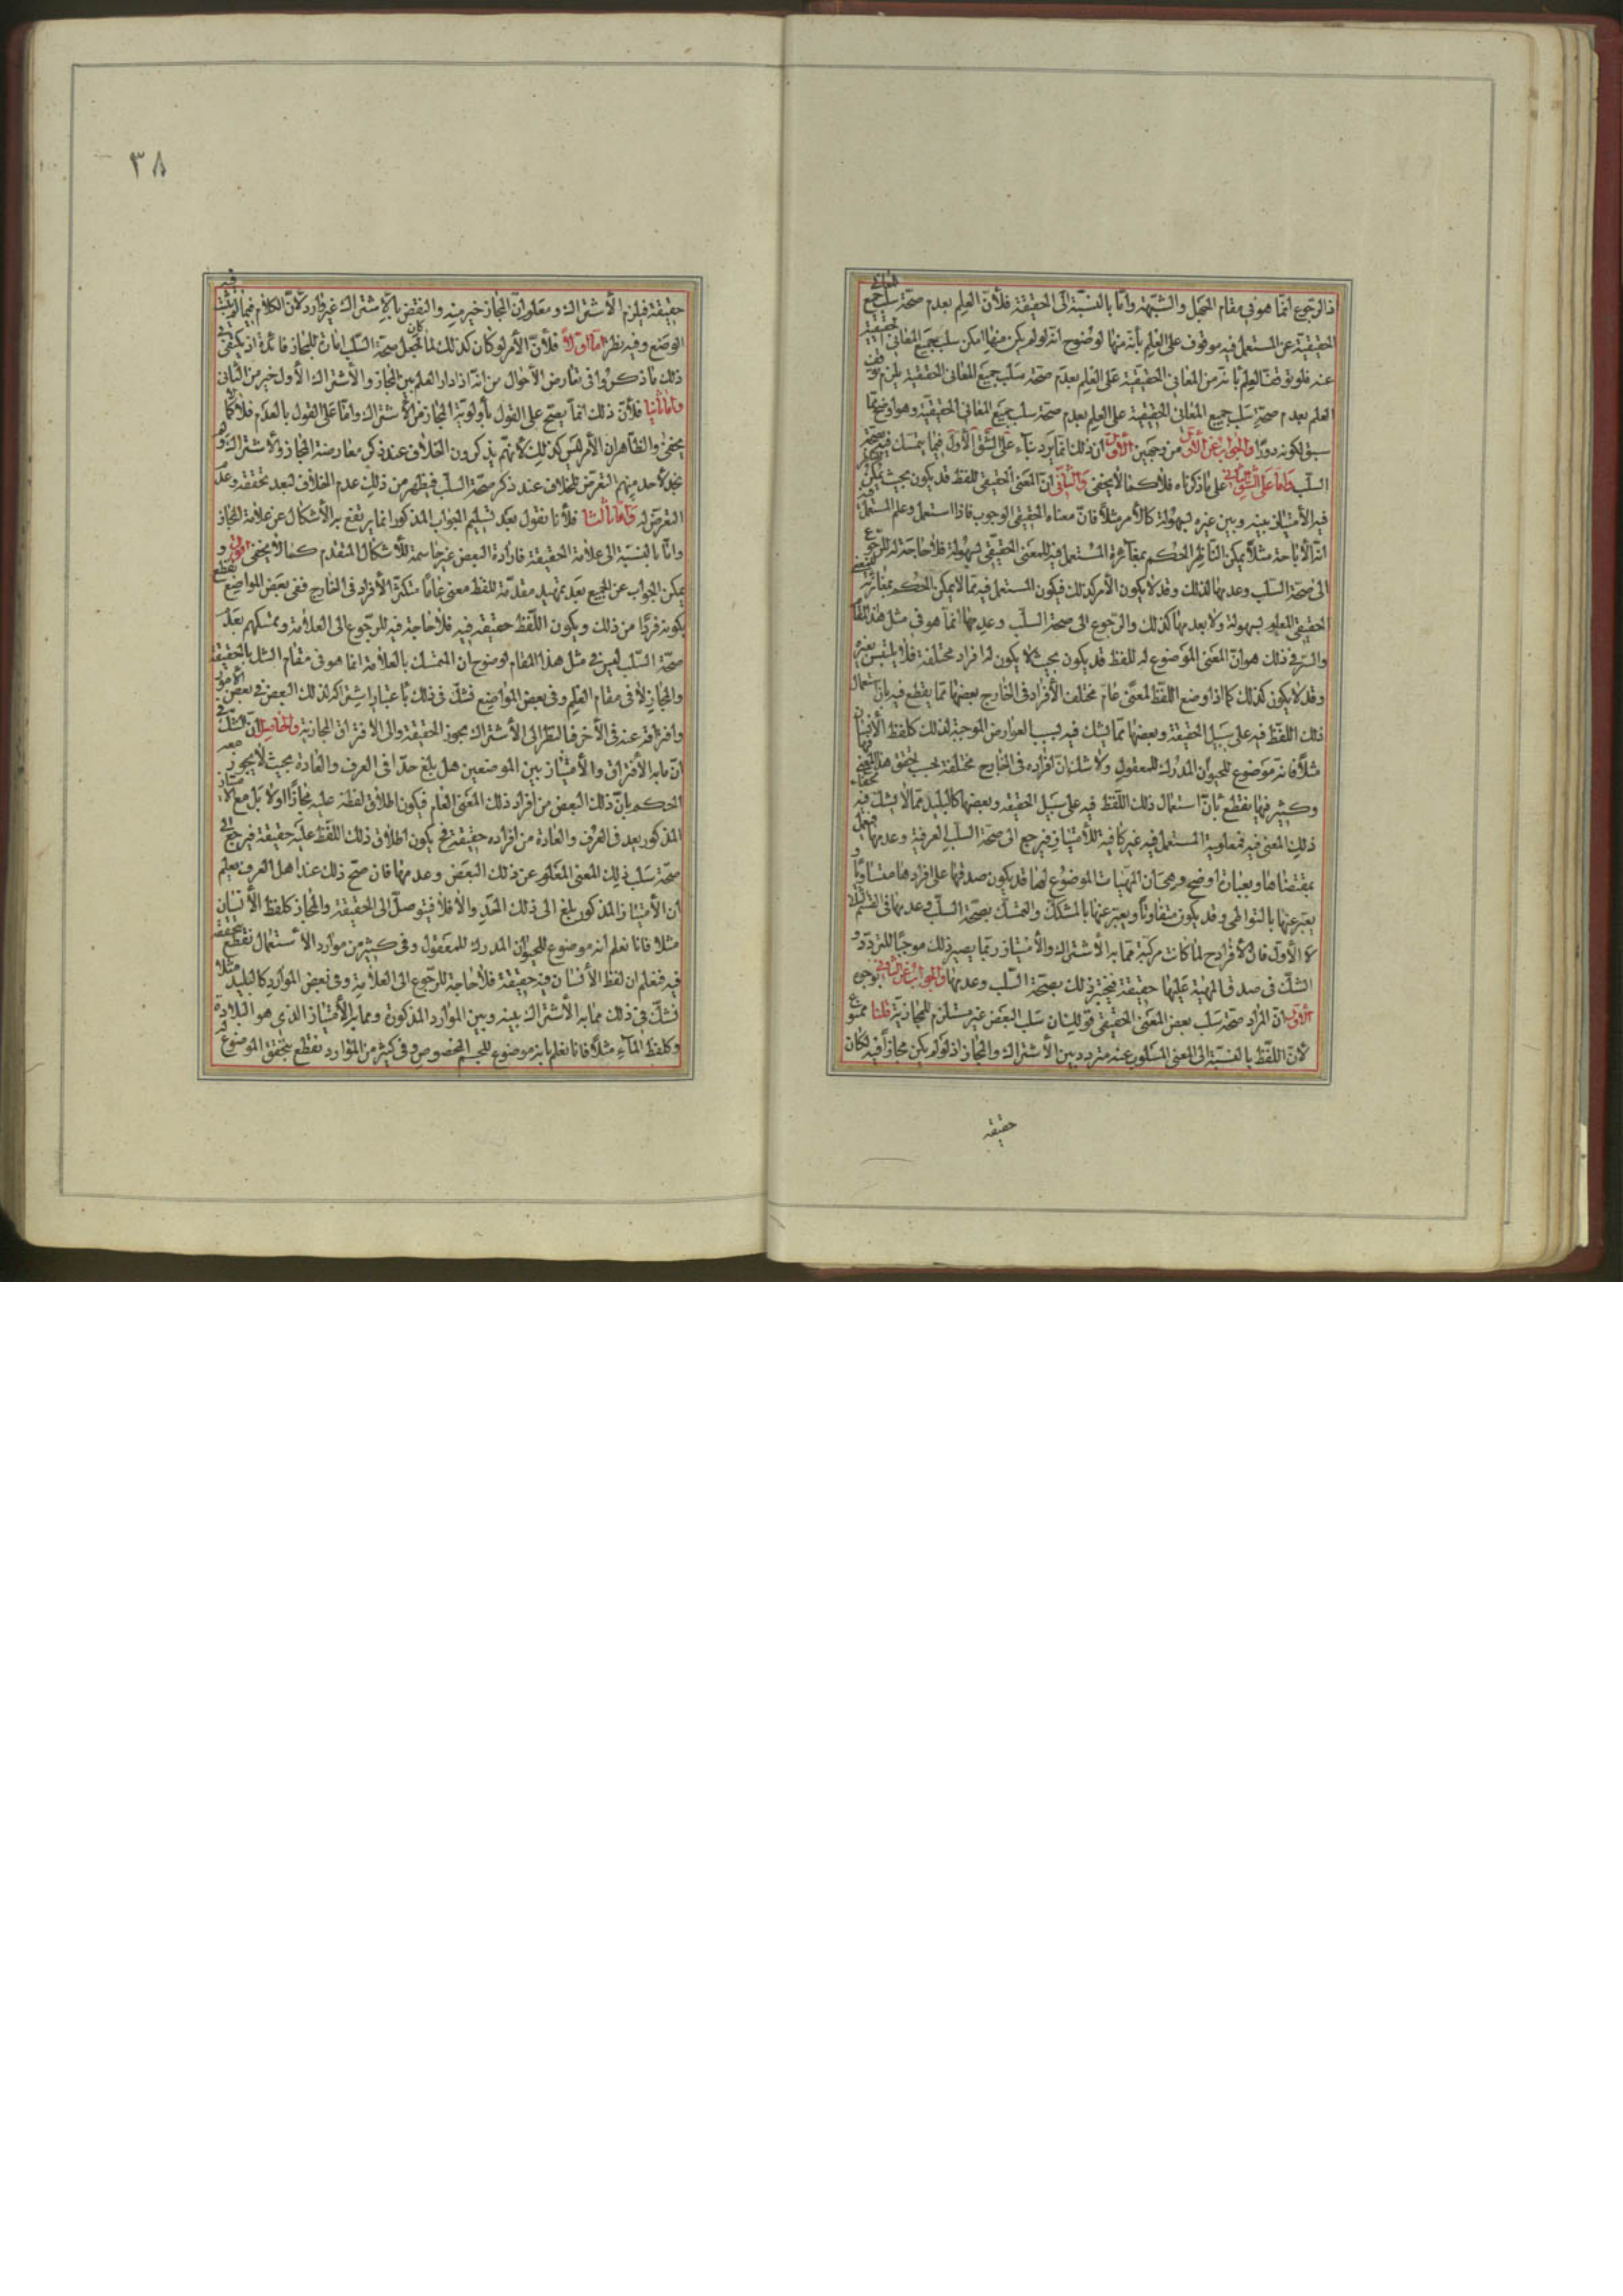 اذ الرجوع انما هو في مقام الجهل والشبهة واما بالنسبة الى الحقيقة فلأن العلم بعدم صحة سلب جميع المعاني
الحقيقية عن المستعمل فيه موقوف على العلم بأنه منها لوضوح انه لو لم يكن منها لامكن سلب جميع المعاني الحقيقية
عنه فلو توقف العلم بانه من المعاني الحقيقية على العلم بعدم صحة سلب جميع المعاني الحقيقية يلزم توقف
العلم بعدم صحة سلب جميع المعاني الحقيقية على العلم بعدم صحة سلب جميع المعاني الحقيقية وهو اوضح مما
سبق لكونه دورا والجواب عن الاول من وجهين الاول ان ذلك انما يرد بناء على الشق الأول فيما يتمسك فيه بصحة
السلب واما على الشق الثاني على ما ذكرناه فلا كما لا يخفى والثاني ان المعنى الحقيقي للفظ قد يكون بحيث يمكن
فيه الأمتياز بينه وبين غيره بسهولة كالأمر مثلا فان معناه الحقيقي الوجوب فاذا استعمل وعلم المستعمل فيه
انه الأباحة مثلا يمكن الناظر الحكم بمغايرة المستعمل فيه للمعنى الحقيقي بسهولة فلا حاجة له للرجوع
الى صحة السلب وعدمها لذلك وقد لا يكون الأمر كذلك فيكون المستعمل فيه مما لا يمكن الحكم بمغايرته للمعنى
الحقيقي المعلوم بسهولة ولا بعدمها كذلك والرجوع الى صحة السلب وعدمها انما هو في مثل هذا المقام
والسر في ذلك هو ان المعنى الموضوع له للفظ قد يكون بحيث لا يكون له افراد مختلفة فلا يلتبس بغيره
وقد لا يكون كذلك كما اذا وضع اللفظ لمعنى عام مختلف الأفراد في الخارج بعضها مما يقطع فيه بان استعمال
ذلك اللفظ فيه على سبيل الحقيقة وبعضها مما يشك فيه لسبب العوارض الموجبة لذلك كلفظ الأنسان
مثلا فانه موضوع للحيوان المدرك للمعقول ولا شك ان افراده في الخارج مختلفة بحسب تحقق هذا المعنى فيها
وكثير منها يقطع بأن استعمال ذلك اللفظ فيه على سبيل الحقيقة وبعضها كالبليد مما لا يشك فيه بخفاء
ذلك المعنى فيه فمعلومية المستعمل فيه غير كافية للأمتياز فيرجع الى صحة السلب العرفية وعدمها فيعمل
بمقتضاها وبعبارة اوضح وهي ان المهيات الموضوع لها قد يكون صدقها على افرادها متساويا و
يعبر عنها بالتواطي وقد يكون متفاوتا ويعبر عنها بالمشكك والتمسك بصحة السلب وعدمها في القسم الثاني
لا الأول فان الأفراد ح لما كانت مركبة مما به الأشتراك والأمتياز ربما يصير ذلك موجبا للتردد و
الشك في صدق المهية عليها حقيقة فيختبر ذلك بصحة السلب وعدمها والجواب عن الثاني بوجوه
الاول ان المراد صحة سلب بعض المعنى الحقيقي قولك ان سلب البعض غير مستلزم للمجازية قلنا ممنوع
لأن اللفظ بالنسبة الى المعنى المسلوب عنه متردد بين الأشتراك والمجاز اذ لو لم يكن مجازا فيه لكان
حقيقة
٣٨
حقيقة فيلزم الأشتراك ومعلوم ان المجاز خير منه والنقض بالأشتراك غير وارد لأن الكلام فيما لم يثبت فيه
الوضع وفيه نظر اما اولا فلأن الأمر لو كان كذلك لما كان لجعل صحة السلب امارة للمجاز فائدة اذ يكفي في
ذلك ما ذكروا في تعارض الأحوال من انه اذا دار العلم بين المجاز والأشتراك الأول خير من الثاني
واما ثانيا فلأن ذلك انما يصح على القول بأولوية المجاز من الأشتراك واما على القول بالعدم فلا كما
يخفى والظاهر ان الأمر ليس كذلك لأنهم يذكرون الخلاف عند ذكر معارضة المجاز والأشتراك ولم
نجد لأحد منهم التعرض للخلاف عند ذكر صحة السلب فيظهر من ذلك عدم الخلاف لبعد تحققه وعدم
التعرض له واما ثالثا فلأنا نقول بعد تسليم الجواب المذكور انما يرتفع به الأشكال عن علامة المجاز
واما بالنسبة الى علامة الحقيقة فارادة البعض غير حاسمة للأشكال المتقدم كما لا يخفى اقول و
يمكن الجواب عن الجميع بعد تمهيد مقدمة للفظ معنى عاما متكثر الأفراد في الخارج ففي بعض المواضع نقطع
بكونه فردا من ذلك ويكون اللفظ حقيقة فيه فلا حاجة فيه للرجوع الى العلامة وتمسكهم بعدم
صحة السلب ليس في مثل هذا المقام لوضوح ان التمسك بالعلامة انما هو في مقام الشك بالحقيقة
والمجاز لا في مقام العلم وفي بعض المواضع نشك في ذلك باعتبار اشتراكه لذلك البعض في بعض الأمور
وافتراقه عنه في الأخر فبالنظر الى الأشتراك يجوز الحقيقة والى الافتراق المجازية والحاصل ان الشك في
ان ما به الأفتراق والأمتياز بين الموضعين هل بلغ حدا في العرف والعادة بحيث لا يجوز معه
الحكم بان ذلك البعض من افراد ذلك المعنى العام فيكون اطلاق لفظه عليه مجازا اولا بل مع الامتياز
المذكور يعد في العرف والعادة من افراده حقيقة فح يكون اطلاق ذلك اللفظ عليه حقيقة فيرجع الى
صحة سلب ذلك المعنى المعلوم عن ذلك البعض وعدمها فان صح ذلك عند اهل العرف يعلم
ان الأمتياز المذكور بلغ الى ذلك الحد والا فلا فيتوصل الى الحقيقة والمجاز كلفظ الأنسان
مثلا فانا نعلم انه موضوع للحيوان المدرك للمعقول وفي كثير من موارد الأستعمال نقطع بتحققه
فيه فنعلم ان لفظ الأنسان فيه حقيقة فلا حاجة للرجوع الى العلامة وفي بعض الموارد كالبليد مثلا
نشك في ذلك مما به الأشتراك بينه وبين الموارد المذكورة ومما به الأمتياز الذي هو البلادة
وكلفظ الماء مثلا فانا نعلم بانه موضوع للجسم المخصوص وفي كثير من الموارد نقطع بتحقق الموضوع له